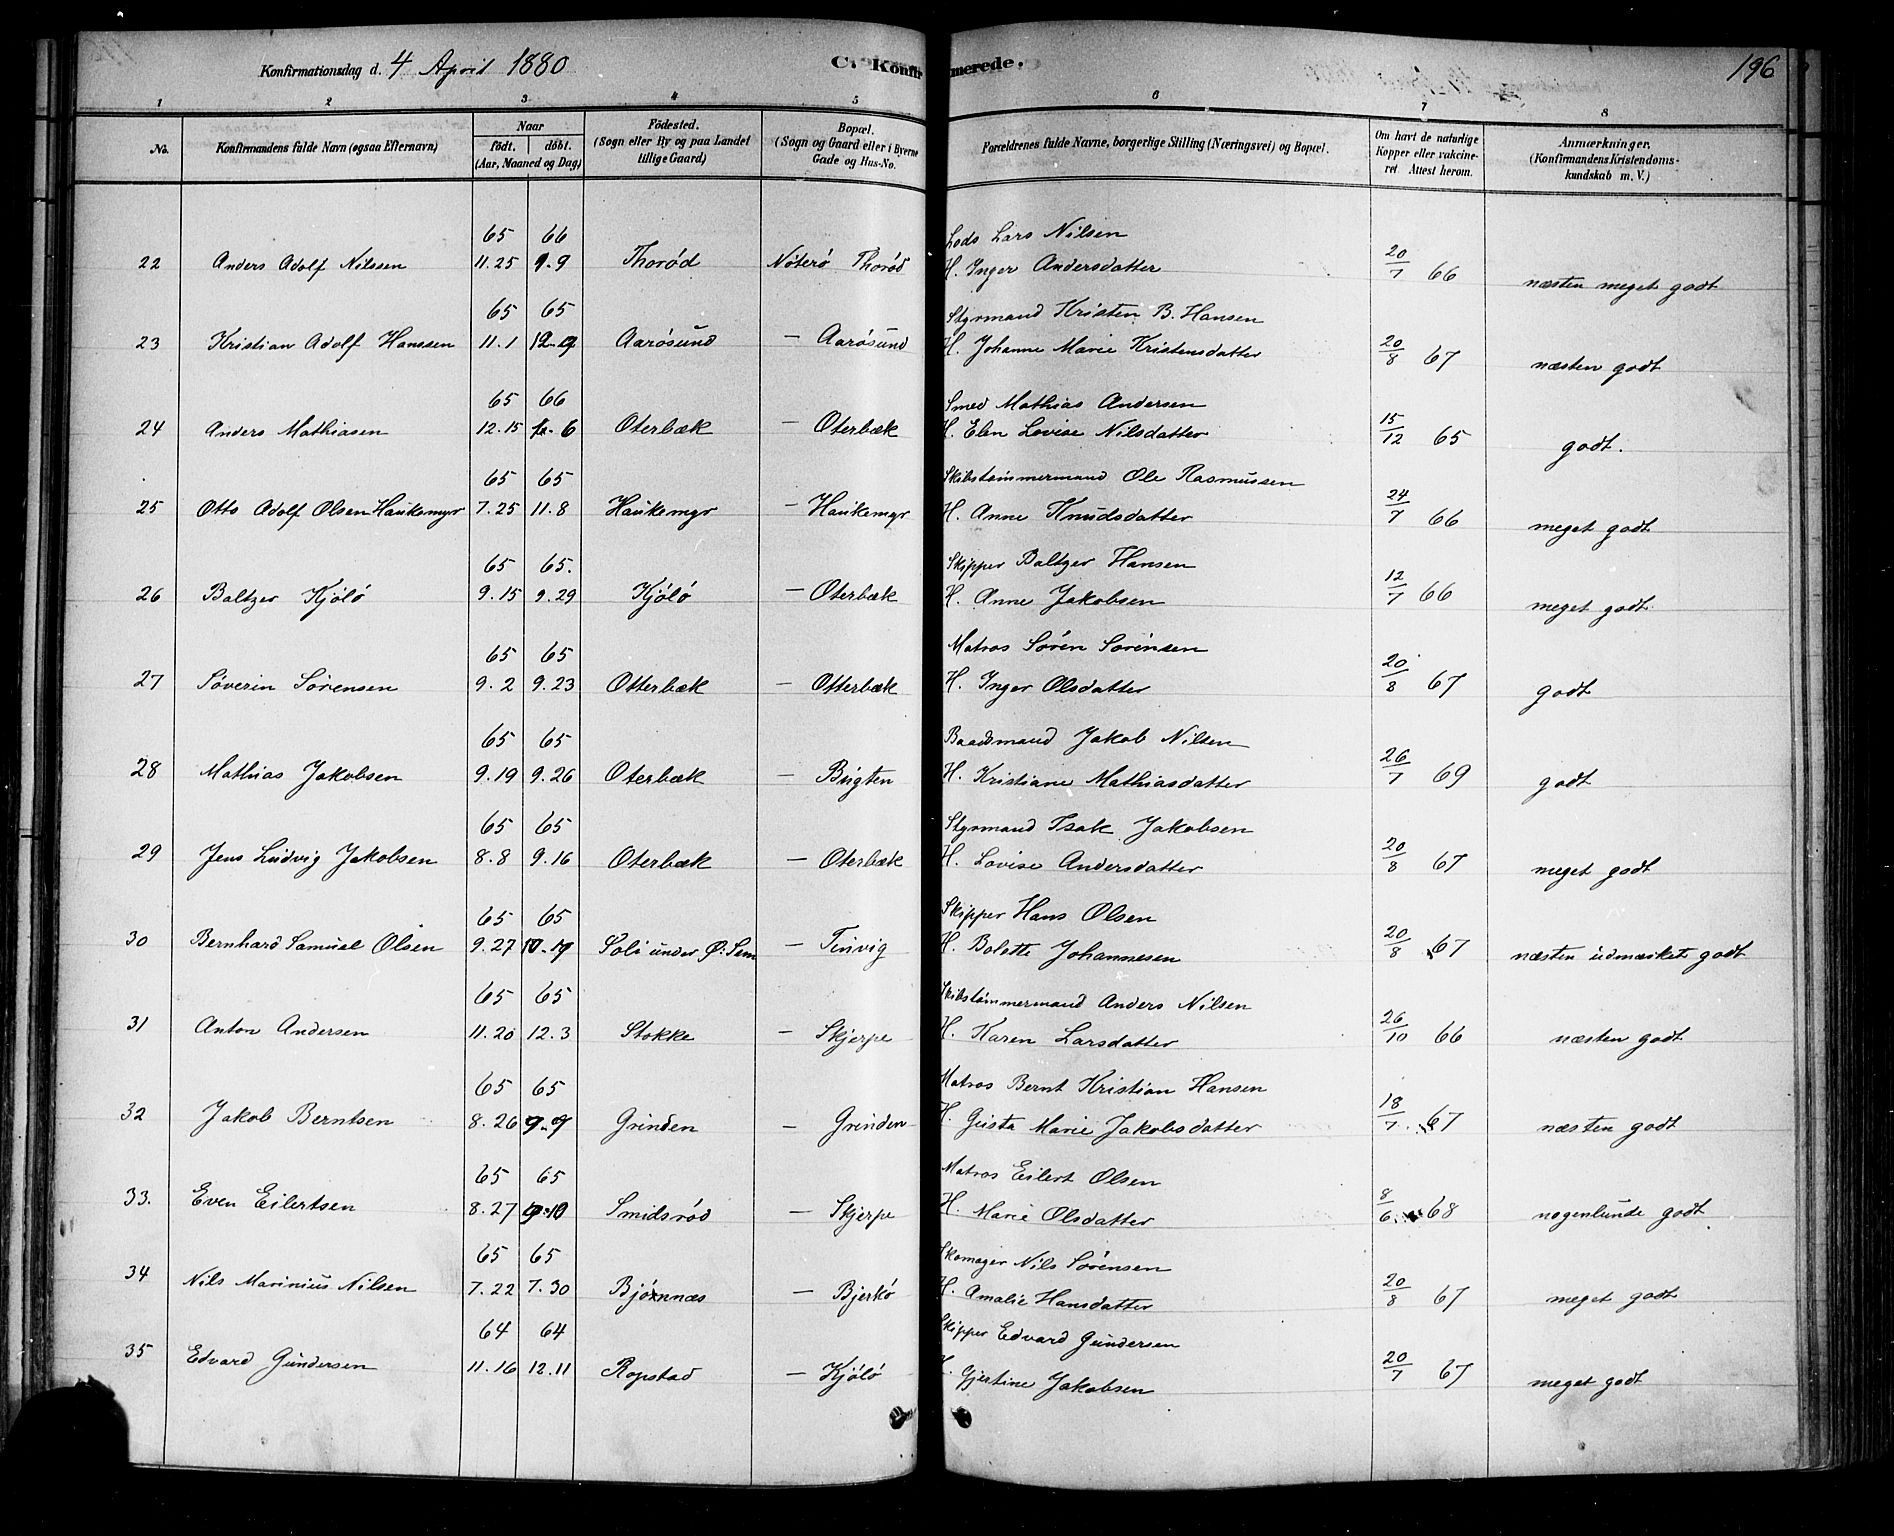 Konfirmationsdag d. 4 April 1880 C. Konfirmerede. 196
1 2 3 4 5 6 7 8
No. Konfirmandens fulde Navn (ogsaa Efternavn) Naar født. døbt. (Aar, Maaned og Dag) Födested. (Sogn eller By og paa Landet tillige Gaard) Bopæl. (Sogn og Gaard eller i Byerne Gade og Hus-No. Forældrenes fulde Navne, borgerlige Stilling (Næringsvei) og Bopæl. Om havt de naturlige Kopper eller vakcineret Attest herom. Anmærkninger. (Konfirmandens Kristendomskundskab m. V.)
65 66 Lods Lars Nilsen
22 Anders Adolf Nilssen 11.25 9.9 Thorød Nøterø Thorød H. Inger Andersdatter 20/7 66 næsten meget godt
65 65 Styrmand Kristen B. Hansen
23 Kristian Adolf Hanssen 11.1 Aarøsund — Aarøsund H. Johanne Marie Kristensdatter 20/8 67 næsten godt
65 66 Smed Mathias Andersen
24 Anders Mathiasen 12.15 Oterbæk — Oterbæk H. Elen Lovise Nilsdatter 15/12 65 godt.
65 65 Skibstømmermand Ole Rasmussen
25 Otto Adolf Olsen Haukemyr 7.25 11.8 Haukemyr — Haukemyr H. Anne Knudsdatter 24/7 66 meget godt
65 65. Skipper Baltzer Hansen
26 Baltzer Kjølø 9.15 9.29 Kjølø — Oterbæk H. Anne Jakobsen 12/7 66 meget godt.
65 65 Matros Søren Sørensen
27 Søverin Sørensen 9.2 9.23 Otterbæk — Otterbæk H. Inger Olsdatter 20/8 67 godt
65 65 Baadsmand Jakob Nilsen
28 Mathias Jakobsen 9.19 9.26 Oterbæk — Bugten H. Kristiane Mathiasdatter 26/7 69 godt
65 65 Styrmand Isak Jakobsen
29 Jens Ludvig Jakobsen 8.8 9.16 Oterbæk — Oterbæk H. Lovise Andersdatter 20/8 67 meget godt
65 65 Skipper Hans Olsen
30 Bernhard Samuel Olsen 9.27 Soli under Ø. Sem — Tinvig H. Bolette Johannesen 20/8 67 næsten udmærket godt
65 65 Skibstømmermand Anders Nilsen
31 Anton Andersen 11.20 12.3 Stokke — Skjerpe H. Karen Larsdatter 26/10 66 næsten godt
65 65 Matros Bernt Kristian Hansen
32 Jakob Berntsen 8.26 Grinden — Grinden H. Gusta Marie Jakobsdatter 18/7 67 næsten godt
65 65 Matros Eilert Olsen
33. Even Eilertsen 8.27 Smidsrød — Skjerpe H. Marie Olsdatter 8/6 68 nogenlunde godt
65 65 Skomager Nils Sørensen
34 Nils Marinius Nilsen 7.22 7.30 Bjønnæs — Bjerkø H. Amalie Hansdatter 20/8 67 meget godt
64 64 Skipper Edvard Gundersen
35 Edvard Gundersen 11.16 12.11 Ropstad — Kjølø H. Gjertine Jakobsen 20/7 67 meget godt